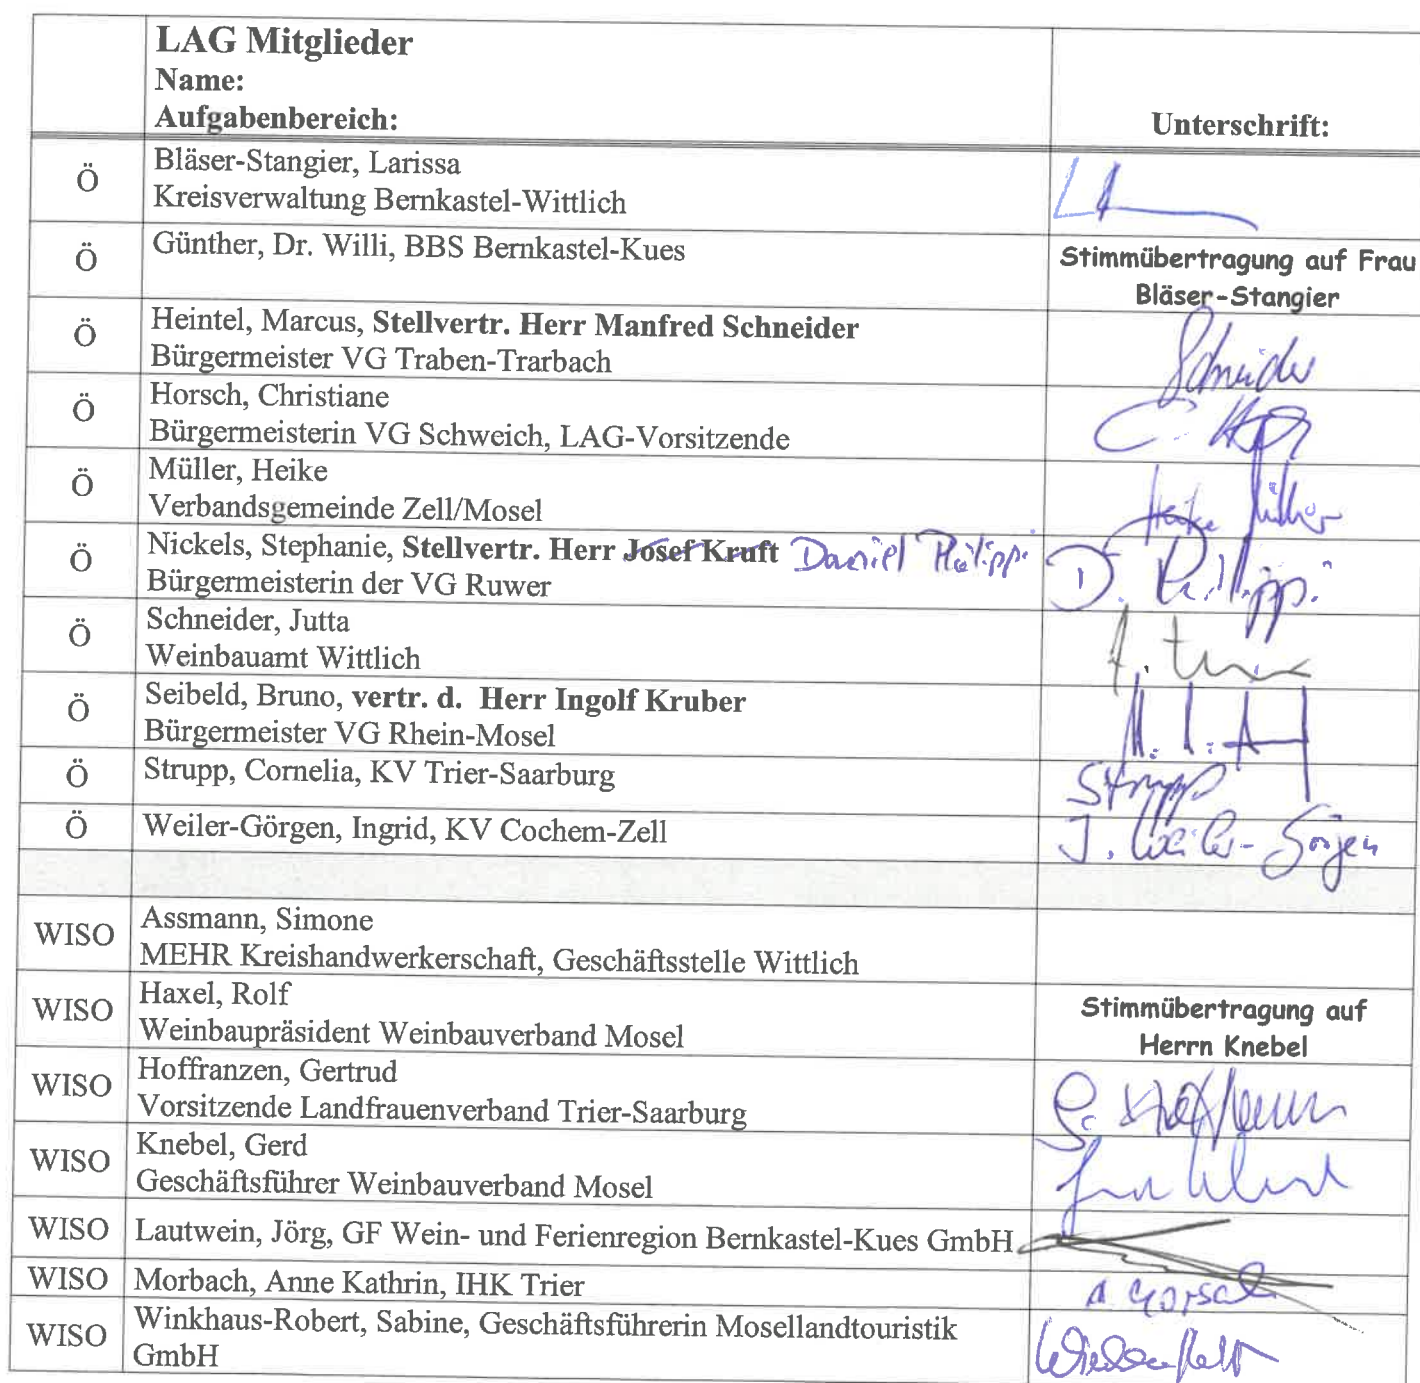 LAG Mitglieder
Name:
Aufgabenbereich:
Unterschrift:
Ö
Bläser-Stangier, Larissa
Kreisverwaltung Bernkastel-Wittlich
Ö
Günther, Dr. Willi, BBS Bernkastel-Kues
Stimmübertragung auf Frau
Bläser-Stangier
Ö
Heintel, Marcus, Stellvertr. Herr Manfred Schneider
Bürgermeister VG Traben-Trarbach
Schneider
Ö
Horsch, Christiane
Bürgermeisterin VG Schweich, LAG-Vorsitzende
Ö
Müller, Heike
Verbandsgemeinde Zell/Mosel
Heike Müller
Ö
Nickels, Stephanie, Stellvertr. Herr Josef Kruft Daniel Philippi
Bürgermeisterin der VG Ruwer
D. Philippi
Ö
Schneider, Jutta
Weinbauamt Wittlich
Ö
Seibeld, Bruno, vertr. d. Herr Ingolf Kruber
Bürgermeister VG Rhein-Mosel
Ö
Strupp, Cornelia, KV Trier-Saarburg
Strupp
Ö
Weiler-Görgen, Ingrid, KV Cochem-Zell
I. Weiler-Görgen
WISO
Assmann, Simone
MEHR Kreishandwerkerschaft, Geschäftsstelle Wittlich
WISO
Haxel, Rolf
Weinbaupräsident Weinbauverband Mosel
Stimmübertragung auf
Herrn Knebel
WISO
Hoffranzen, Gertrud
Vorsitzende Landfrauenverband Trier-Saarburg
WISO
Knebel, Gerd
Geschäftsführer Weinbauverband Mosel
WISO
Lautwein, Jörg, GF Wein- und Ferienregion Bernkastel-Kues GmbH
WISO
Morbach, Anne Kathrin, IHK Trier
WISO
Winkhaus-Robert, Sabine, Geschäftsführerin Mosellandtouristik
GmbH